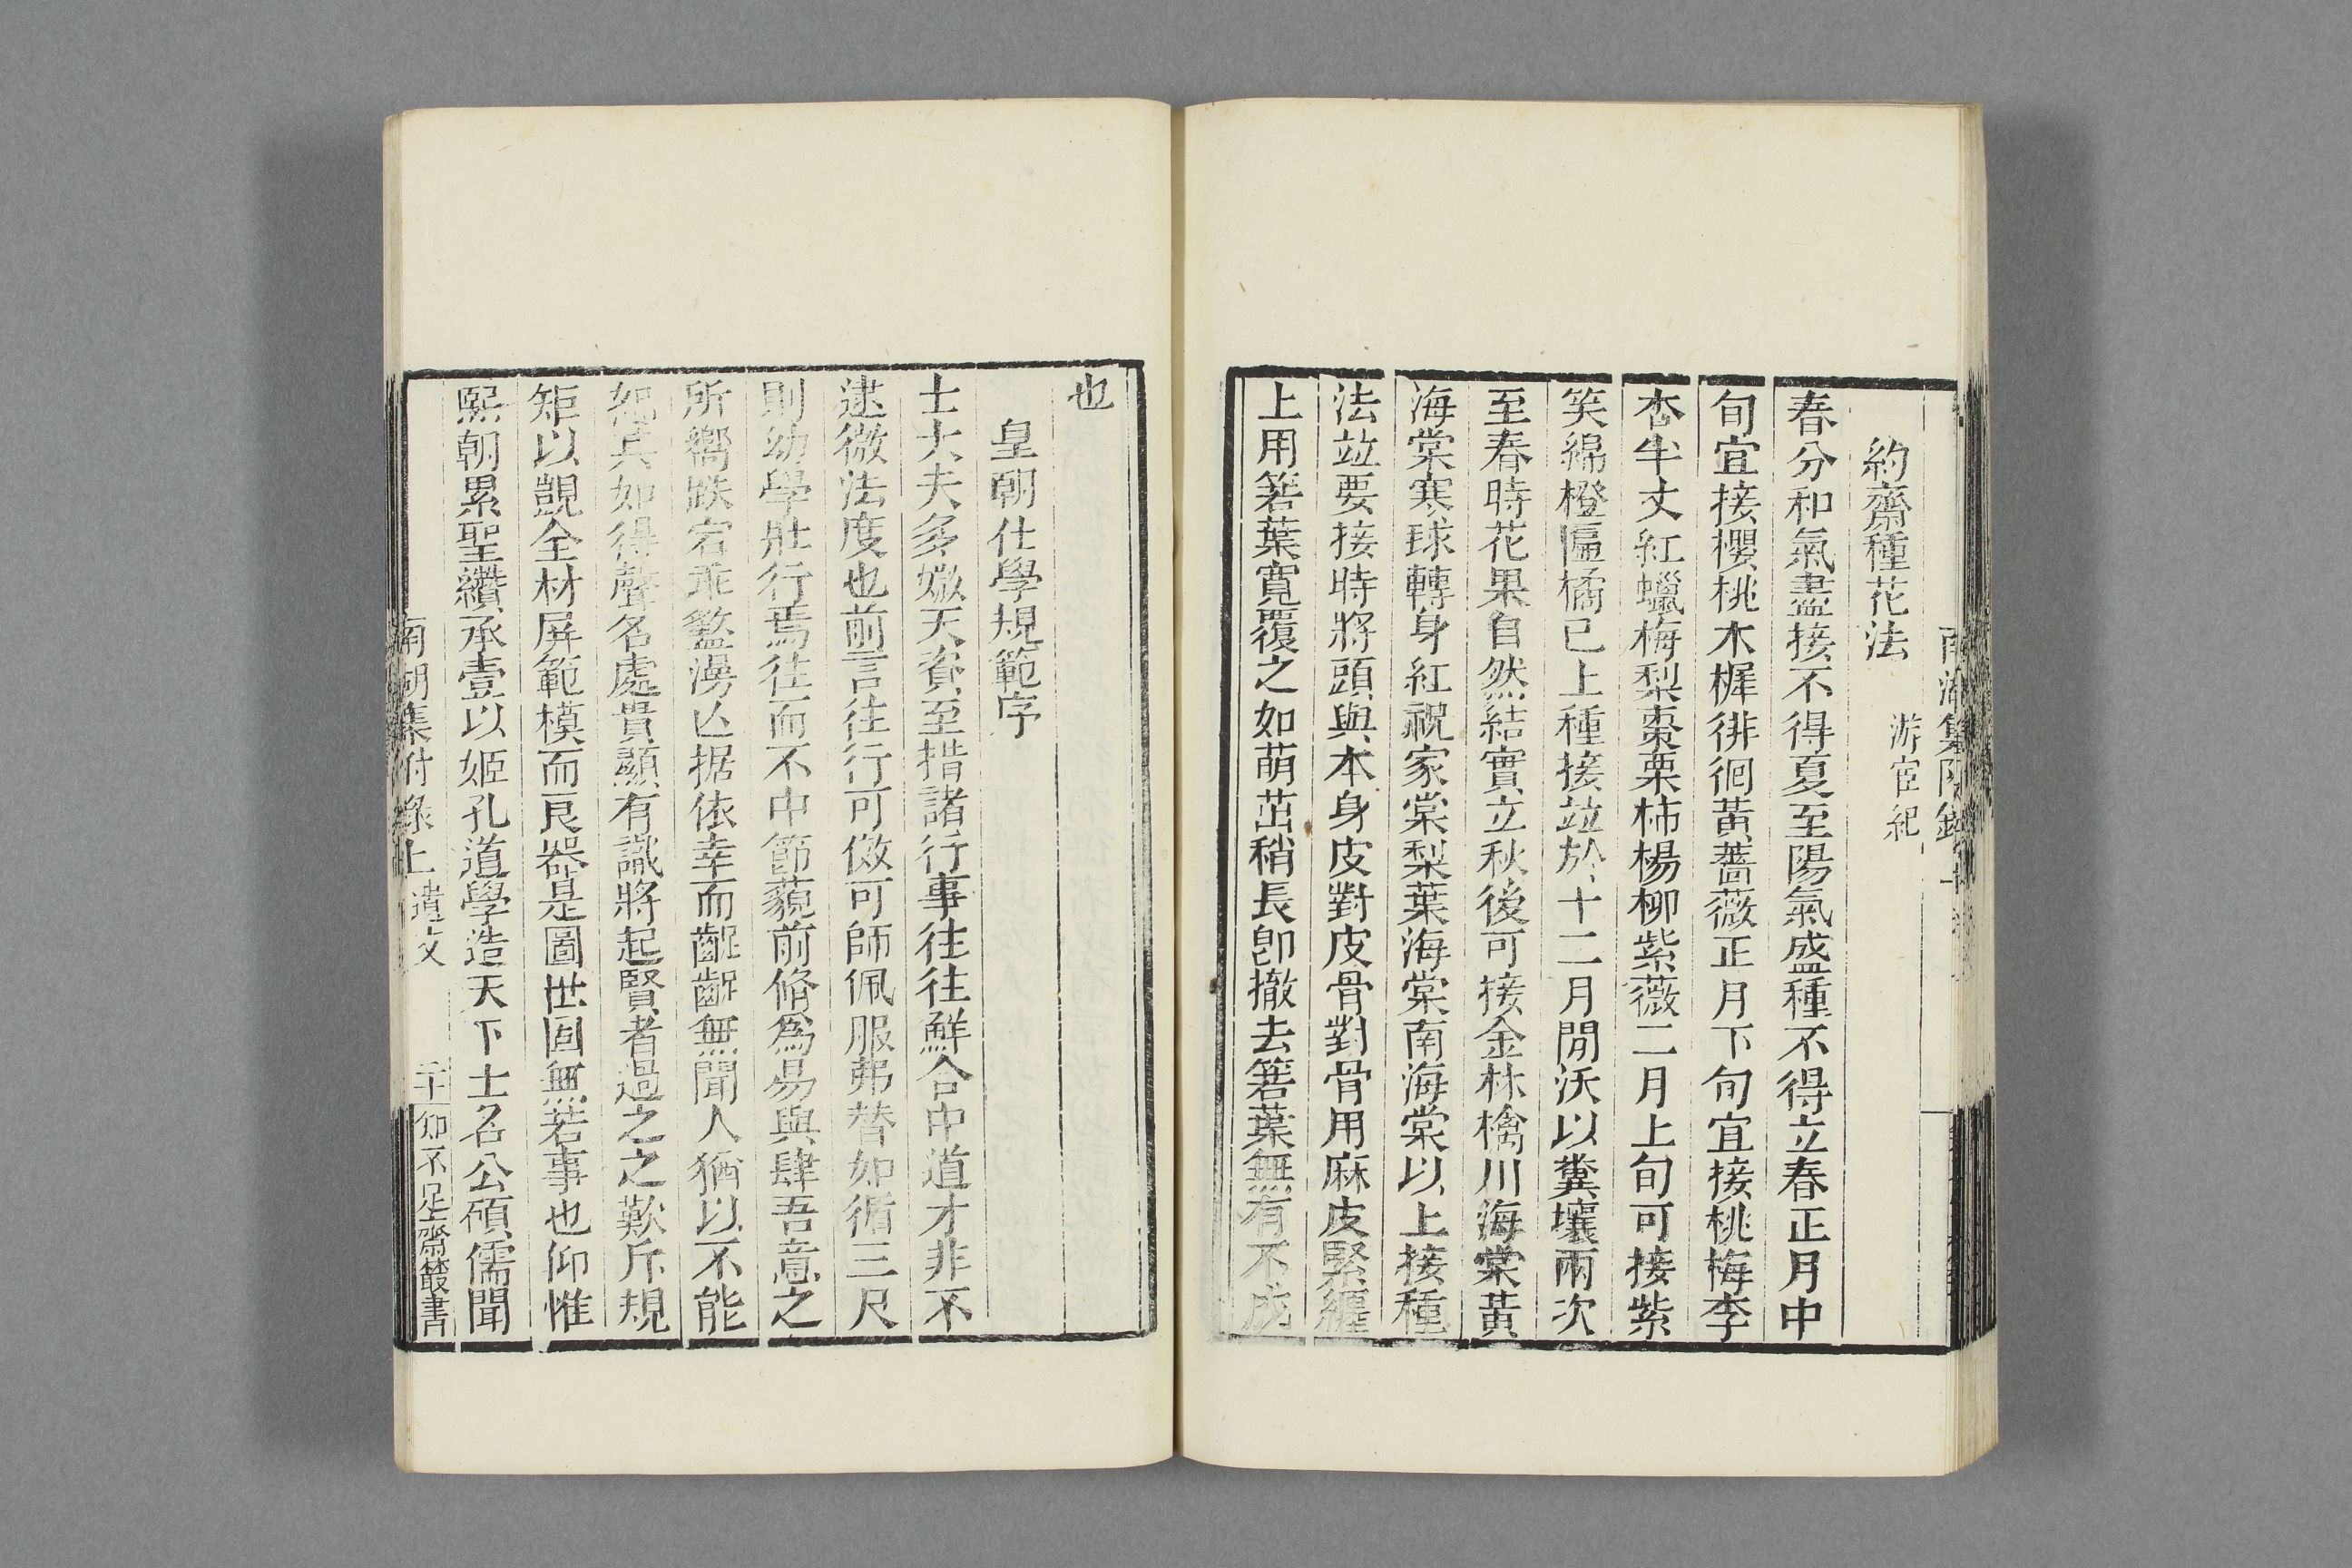 約齋種花法
游宦紀
春分和氣盡接不得夏至陽氣盛種不得立春正月中
旬宜接櫻桃木樨徘徊黃薔薇正月下旬宜接桃梅李
杏半丈紅蠟梅梨棗栗柿楊柳紫薇二月上旬可接紫
笑綿橙匾橘已上種接竝於十二月閒沃以糞壤兩次
至春時花果自然結實立秋後可接金林檎川海棠黃
海棠寒球轉身紅祝家棠梨葉海棠南海棠以上接種
法竝要接時將頭與本身皮對皮骨對骨用麻皮緊纏
上用箬葉寬覆之如萌茁稍長卽撤去箬葉無有不成
也
皇朝仕學規範序
士大夫多媺天資至措諸行事往往鮮合中道才非不
逮微法度也前言往行可倣可師佩服弗替如循三尺
則幼學壯行焉往而不中節藐前脩爲易與肆吾意之
所嚮跌宕乖盭漫亾据依幸而齷齪無聞人猶以不能
恕其如得聲名處貴顯有識將起賢者過之之歎斥規
矩以覬全材屏範模而良器是圖世固無若事也仰惟
熙朝累聖纘承壹以姬孔道學造天下士名公碩儒聞
南湖集附錄上 遺文 二十 知不足齋叢書